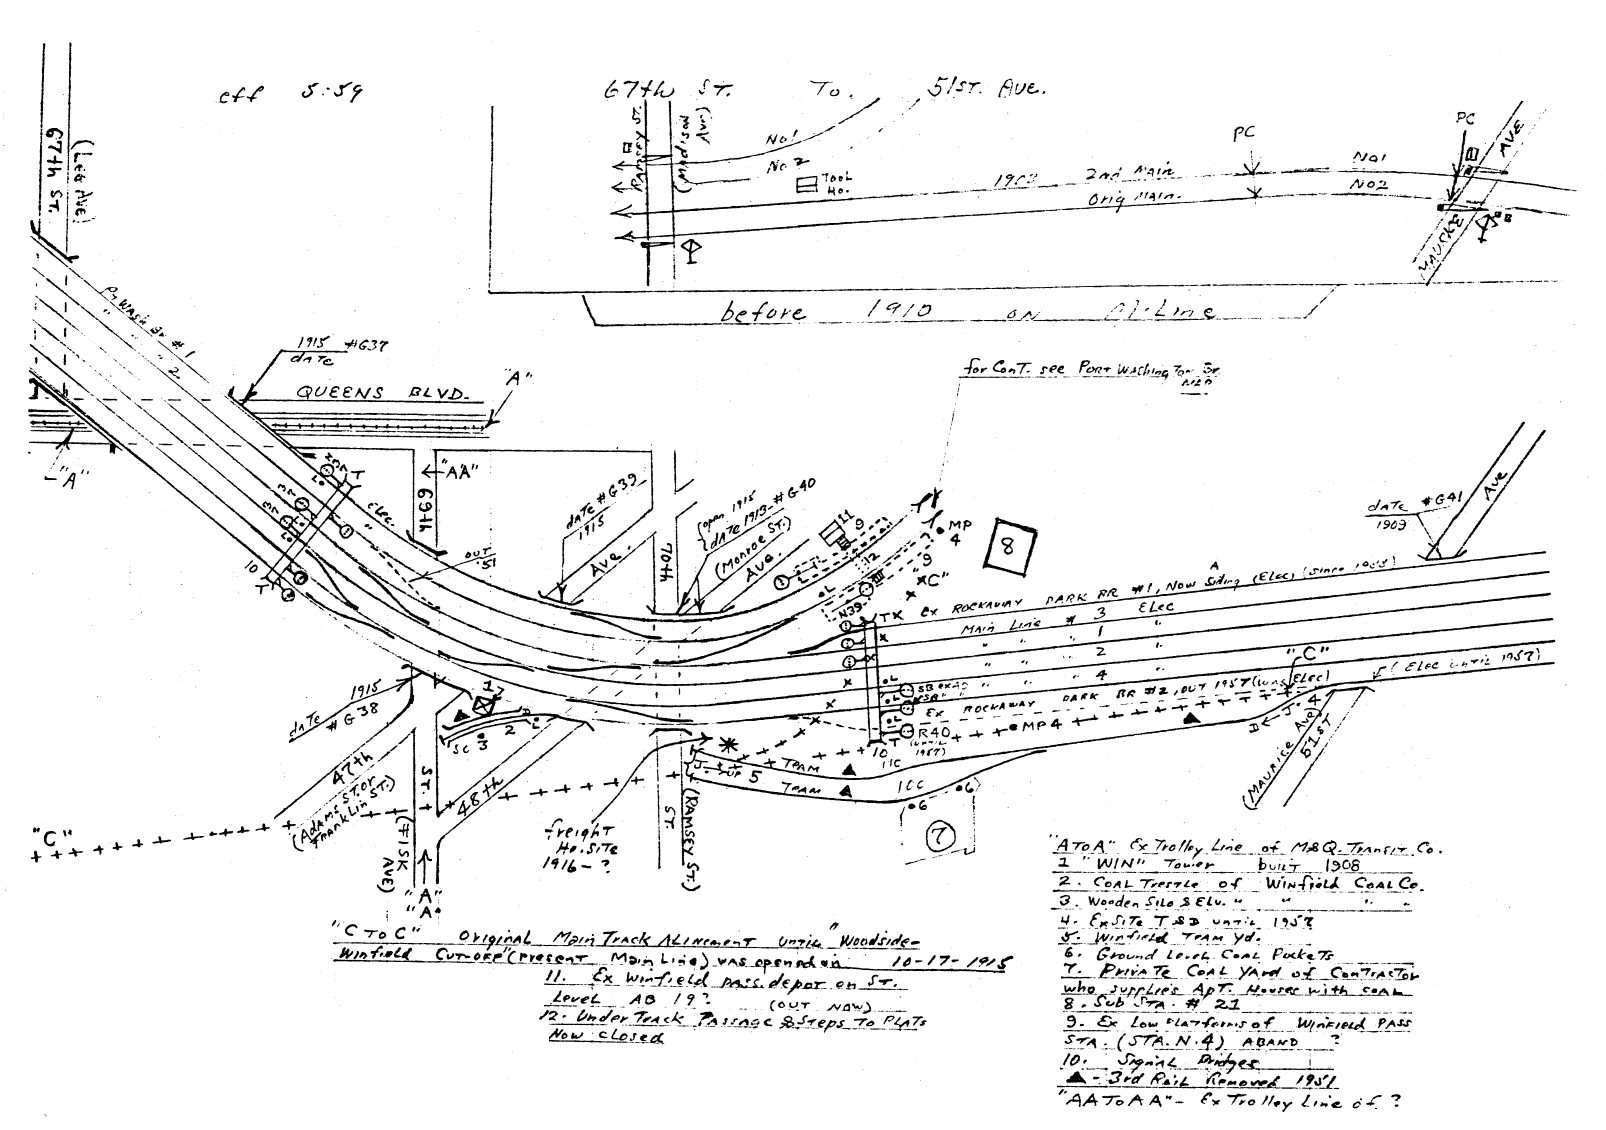 eff 5:59
67th ST. To. 51ST. AVE.
RAMSEY ST.
(Madison Ave)
No1
No 2
Tool
Ho.
2nd Main
Orig Main.
PC
PC
No1
No2
AVE
before 1910 on
67th ST.
(Lee Ave)
1915 #G37
date
QUEENS BLVD.
"A"
"A"
Elec.
10
T
T
←"AA"
69th
OUT
'51
date #G39
1915
Ave.
70th
{open 1915
date 1913- #G40
(Monroe ST.)
Ave.
11
9
12
9
MP
4
"C"
N39
TX
8
for Cont. see Port Washington Br.
date #G41
1909
Ave
Ex ROCKAWAY PARK BR #1, Now Siding (Elec)
Main Line # 3 Elec
" " " 1 "
" " " 2 "
" " " 4 "
Ex ROCKAWAY PARK BR #2, OUT 1957 (was Elec)
"C"
(Elec until 1957)
R40
(until
1957)
10 T
MP4
4
(MAURICE Ave)
51ST
1915
date
#G38
1
SC 3
2
47th
(Adams ST. or
Franklin ST.)
ST.
48th
(FISK
AVE)
"A"
"A"
"C"
freight
Ho. Site
1916-?
ST.
(RAMSEY ST.)
5
TEAM
TEAM
ICC
ICC
6
6
7
"C To C" Original Main Track Alinement until "Woodside-
Winfield Cut-off" (Present Main Line) was opened on 10-17-1915
11. Ex Winfield pass. depot on ST.
Level AB 19? (OUT NOW)
12. Under Track Passage & Steps To Plats
Now closed
"A To A" Ex Trolley Line of M&Q. Transit Co.
1 "WIN" Tower built 1908
2. Coal Trestle of Winfield Coal Co.
3. Wooden Silo & Elv. " " "
4. Ex Site T SD until 1957
5. Winfield Team Yd.
6. Ground Level Coal Pockets
7. Private Coal Yard of Contractor
who supplies Apt. Houses with coal
8. Sub Sta. # 21
9. Ex Low Platforms of Winfield Pass
STA. (STA. N. 4) ABAND ?
10. Signal Bridges
▲ - 3rd Rail Removed 1951
"AA To AA" - Ex Trolley Line of ?